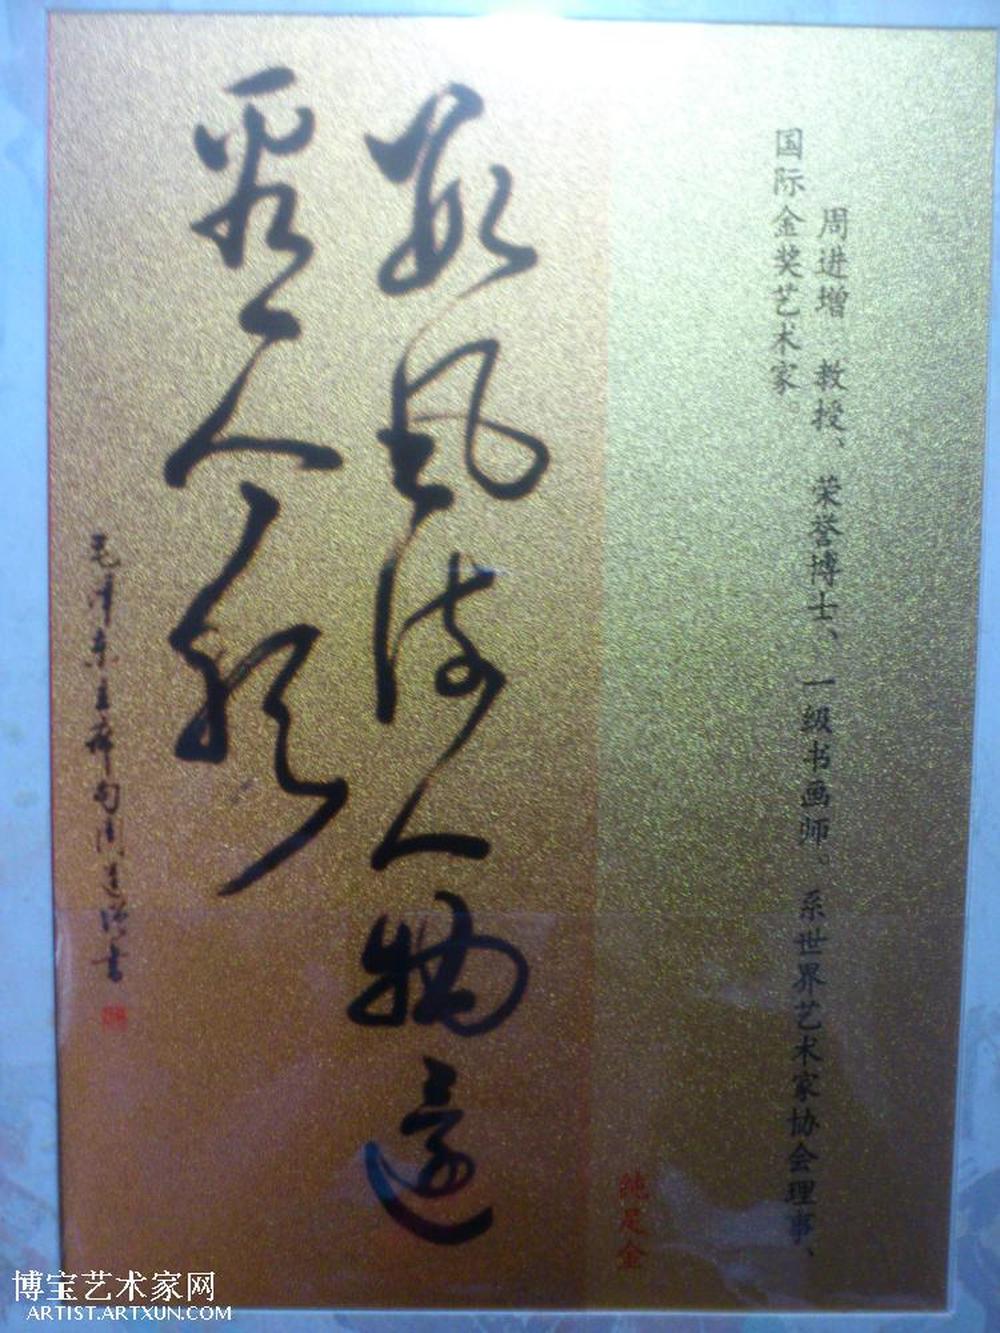 周进增 教授、荣誉博士、一级书画师。系世界艺术家协会理事、
国际金奖艺术家。
纯足金
数风流人物还
看今朝
毛泽东主席句周进增书
博宝艺术家网
ARTIST.ARTXUN.COM